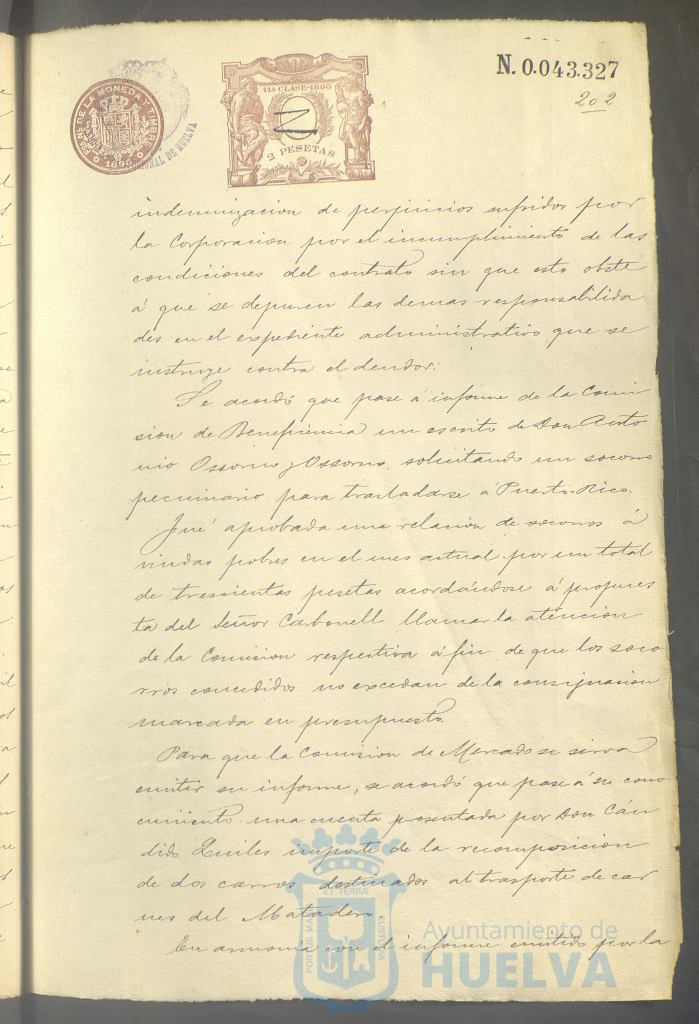 N. 0.043.327
202
FCA. NAL. DE LA MONEDA Y TIMBRE
1895
DE HUELVA
11ª CLASE-1895
2 PESETAS
indemnizacion de perjuicios sufridos por
la Corporacion por el incumplimiento de las
condiciones del contrato sin que esto obste
á que se depuren las demas responsabilida
des en el expediente administrativo que se
instruye contra el deudor.
Se acordó que pase á informe de la Comi
sion de Beneficencia un escrito de Don Anto
nio Ossorno y Ossorno, solicitando un socorro
pecuniario para trasladarse á Puerto-Rico.
Fué aprobada una relacion de socorros á
viudas pobres en el mes actual por un total
de trescientas pesetas acordándose á propues
ta del Señor Carbonell llamar la atencion
de la Comision respectiva á fin de que los soco
rros concedidos no excedan de la consignacion
marcada en presupuesto.
Para que la Comision de Mercado se sirva
emitir su informe, se acordó que pase á su cono
cimiento una cuenta presentada por Don Cán
dido Quiles importe de la recomposicion
de dos carros destinados al trasporte de car
nes del Matadero.
En armonia con el informe emitido por la
PORTUS MARIS ET TERRAE CUSTODIA
Ayuntamiento de
HUELVA